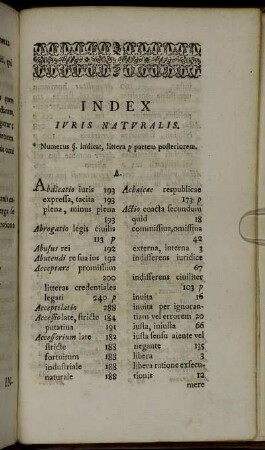 INDEX
IVRIS NATVRALIS.
* Numerus §. indicat, littera p partem posteriorem.
A.
Abdicatio iuris 193
expressa, tacita 193
plena, minus plena
193
Abrogatio legis ciuilis
113 p
Abusus rei 192
Abutendi re sua ius 192
Acceptare promissum
200
litteras credentiales
legati 240 p
Acceptilatio 288
Accessio late, stricte 184
putatiua 191
Accessorium late 182
stricte 188
fortuitum 188
industriale 188
naturale 188
Achaicae respublicae
173 p
Actio coacta secundum
quid 18
commissiua, omissiua
42
externa, interna 3
indifferens iuridice
67
indifferens ciuiliter
103 p
inuita 16
inuita per ignoran-
tiam vel errorem 20
iusta, iniusta 66
iusta sensu aiente vel
negante 135
libera 3
libera ratione exsecu-
tionis 12
mere
IN-